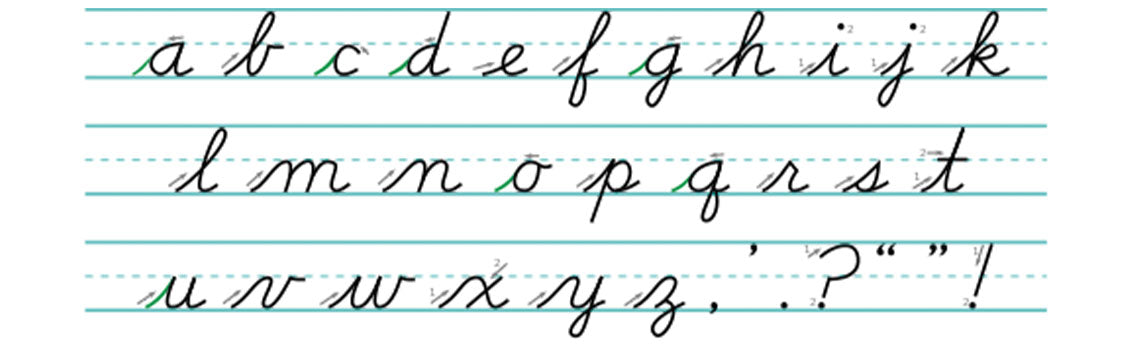 a b c d e f g h i j k
l m n o p q r s t
u v w x y z , ’ . ? “ ” !